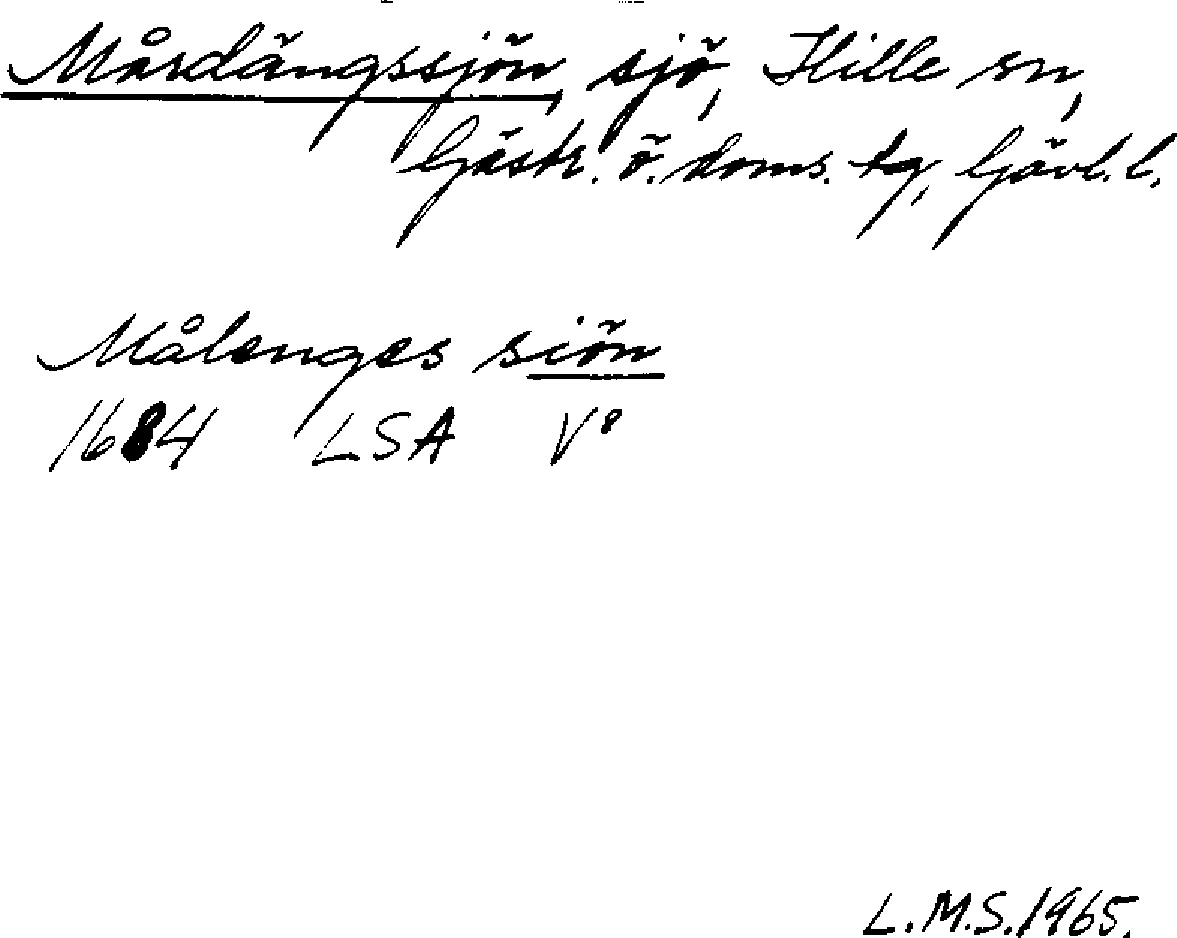 Mårdängssjön, sjö, Hille sn,
Gästr. ö. doms. tg, Gävl. l.
Målenges siön
1684 LSA V⁸
L.M.S. 1965.